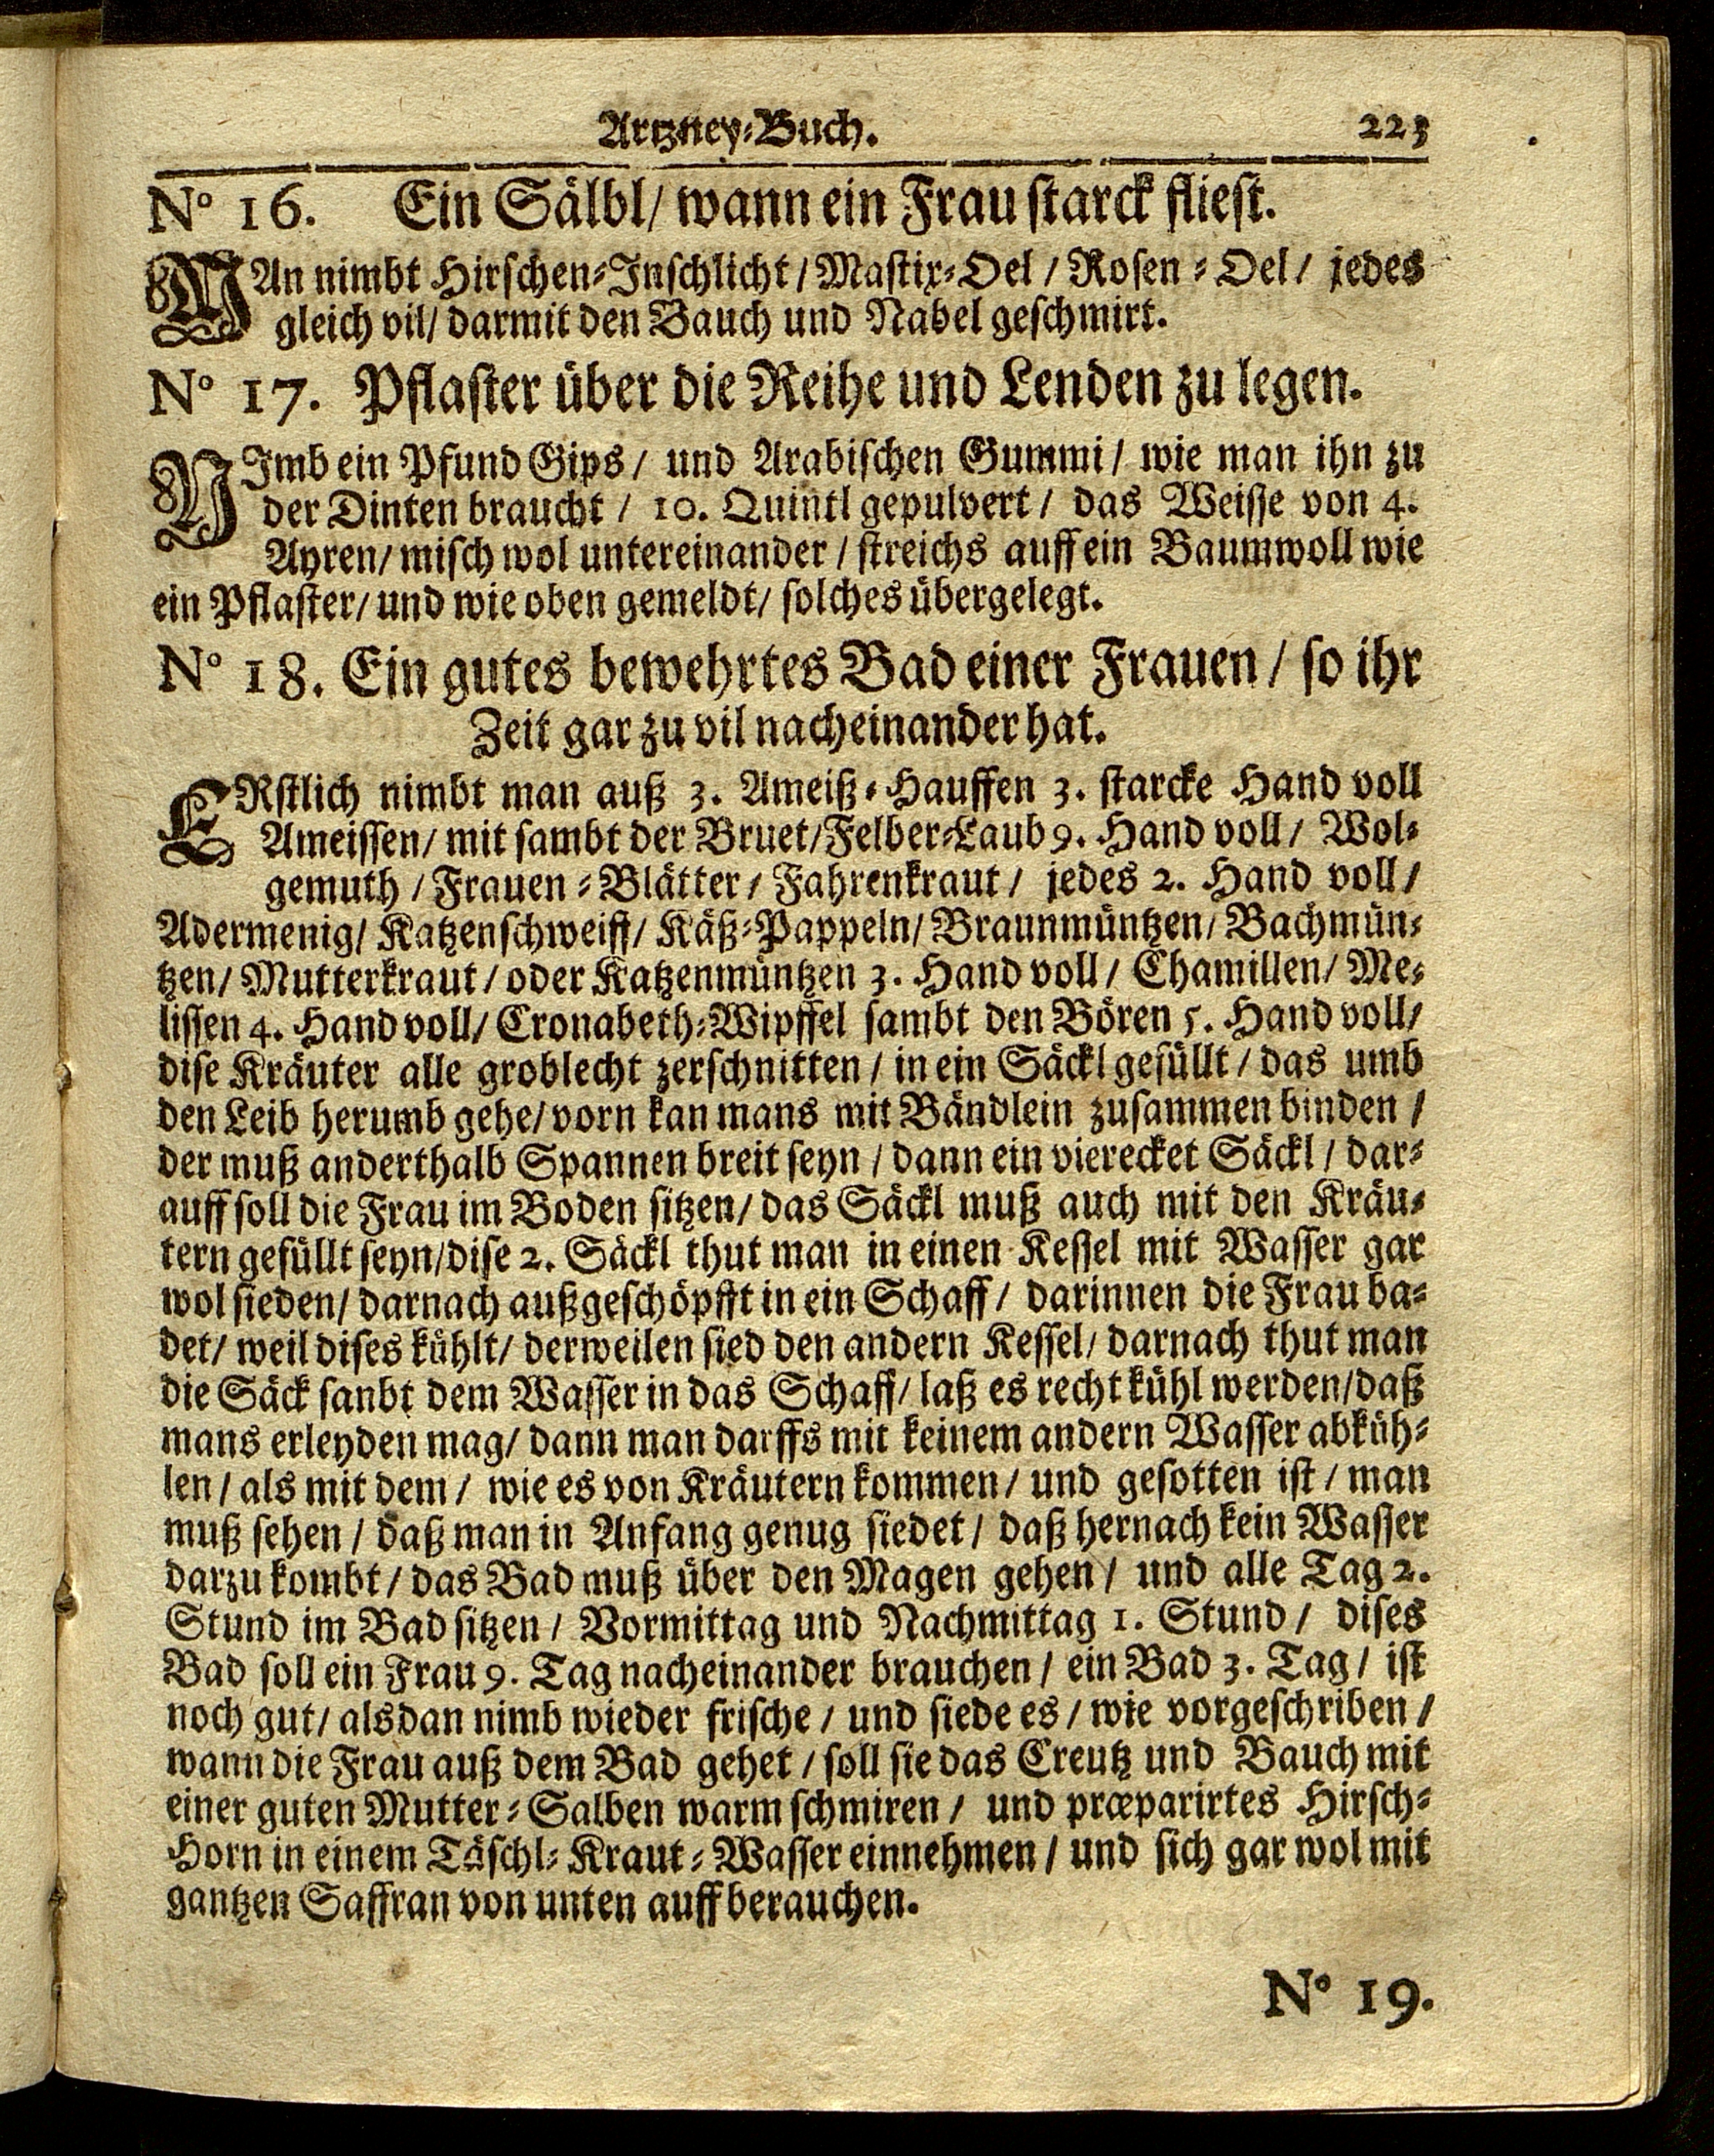 Artzney-Buch. 223
N° 16. Ein Sälbl/ wann ein Frau starck fliest.
MAn nimbt Hirschen-Inschlicht / Mastix-Oel / Rosen-Oel / jedes
gleich vil/ darmit den Bauch und Nabel geschmirt.
N° 17. Pflaster über die Reihe und Lenden zu legen.
NImb ein Pfund Gips / und Arabischen Gummi / wie man ihn zu
der Dinten braucht / 10. Quintl gepulvert / das Weisse von 4.
Ayren/ misch wol untereinander / streichs auff ein Baumwoll wie
ein Pflaster/ und wie oben gemeldt/ solches übergelegt.
N° 18. Ein gutes bewehrtes Bad einer Frauen / so ihr
Zeit gar zu vil nacheinander hat.
ERstlich nimbt man auß 3. Ameiß-Hauffen 3. starcke Hand voll
Ameissen/ mit sambt der Bruet/Felber-Laub 9. Hand voll / Wol-
gemuth / Frauen-Blätter / Fahrenkraut / jedes 2. Hand voll /
Adermenig/ Katzenschweiff/ Käß-Pappeln/ Braunmüntzen/ Bachmün-
tzen/ Mutterkraut / oder Katzenmüntzen 3. Hand voll / Chamillen/ Me-
lissen 4. Hand voll/ Cronabeth-Wipffel sambt den Bören 5. Hand voll/
dise Kräuter alle groblecht zerschnitten / in ein Säckl gefüllt / das umb
den Leib herumb gehe/ vorn kan mans mit Bändlein zusammen binden /
der muß anderthalb Spannen breit seyn / dann ein vierecket Säckl / dar-
auff soll die Frau im Boden sitzen/ das Säckl muß auch mit den Kräu-
tern gefüllt seyn/dise 2. Säckl thut man in einen Kessel mit Wasser gar
wol sieden/ darnach außgeschöpfft in ein Schaff / darinnen die Frau ba-
det/ weil dises kühlt/ derweilen sied den andern Kessel/ darnach thut man
die Säck sanbt dem Wasser in das Schaff/ laß es recht kühl werden/daß
mans erleyden mag/ dann man darffs mit keinem andern Wasser abküh-
len / als mit dem / wie es von Kräutern kommen / und gesotten ist / man
muß sehen / daß man in Anfang genug siedet / daß hernach kein Wasser
darzu kombt / das Bad muß über den Magen gehen / und alle Tag 2.
Stund im Bad sitzen / Vormittag und Nachmittag 1. Stund / dises
Bad soll ein Frau 9. Tag nacheinander brauchen / ein Bad 3. Tag / ist
noch gut/ alsdan nimb wieder frische / und siede es / wie vorgeschriben /
wann die Frau auß dem Bad gehet / soll sie das Creutz und Bauch mit
einer guten Mutter-Salben warm schmiren / und præparirtes Hirsch-
Horn in einem Täschl-Kraut-Wasser einnehmen / und sich gar wol mit
gantzen Saffran von unten auff berauchen.
N° 19.